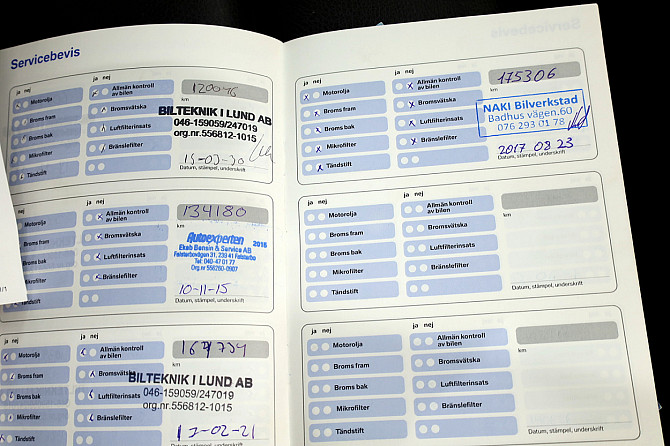 Servicebevis
ja nej
ja nej
Motorolja
Broms fram
Broms bak
Mikrofilter
Tändstift
Allmän kontroll
av bilen
Bromsvätska
Luftfilterinsats
Bränslefilter
120046
km
BILTEKNIK I LUND AB
046-159059/247019
org.nr.556812-1015
Datum, stämpel, underskrift
Motorolja
Broms fram
Broms bak
Mikrofilter
Tändstift
Allmän kontroll
av bilen
Bromsvätska
Luftfilterinsats
Bränslefilter
134180
km
Autoexperten 2015
Ekab Bensin & Service AB
Falsterbovägen 31, 239 41 Falsterbo
Tel: 040-47 01 77
Org.nr 556260-0907
10-11-15
Datum, stämpel, underskrift
ja nej
ja nej
Motorolja
Broms fram
Broms bak
Mikrofilter
Tändstift
Allmän kontroll
av bilen
Bromsvätska
Luftfilterinsats
Bränslefilter
BILTEKNIK I LUND AB
046-159059/247019
org.nr.556812-1015
ja nej
ja nej
Motorolja
Broms fram
Broms bak
Mikrofilter
Tändstift
Allmän kontroll
av bilen
Bromsvätska
Luftfilterinsats
Bränslefilter
175306
km
NAKI Bilverkstad
Badhus vägen.60
076 293 01 78
2017 08 23
Datum, stämpel, underskrift
Motorolja
Broms fram
Broms bak
Mikrofilter
Tändstift
Allmän kontroll
av bilen
Bromsvätska
Luftfilterinsats
Bränslefilter
km
Datum, stämpel, underskrift
ja nej
ja nej
Motorolja
Broms fram
Broms bak
Mikrofilter
Tändstift
Allmän kontroll
av bilen
Bromsvätska
Luftfilterinsats
Bränslefilter
km
Datum, stämpel, underskrift